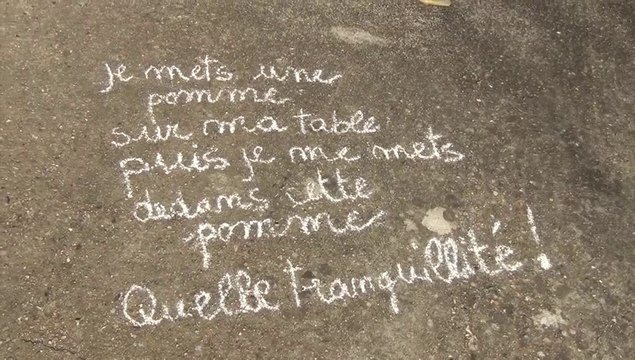 Je mets une
pomme
sur ma table
puis je me mets
dedans cette
pomme
Quelle tranquillité !